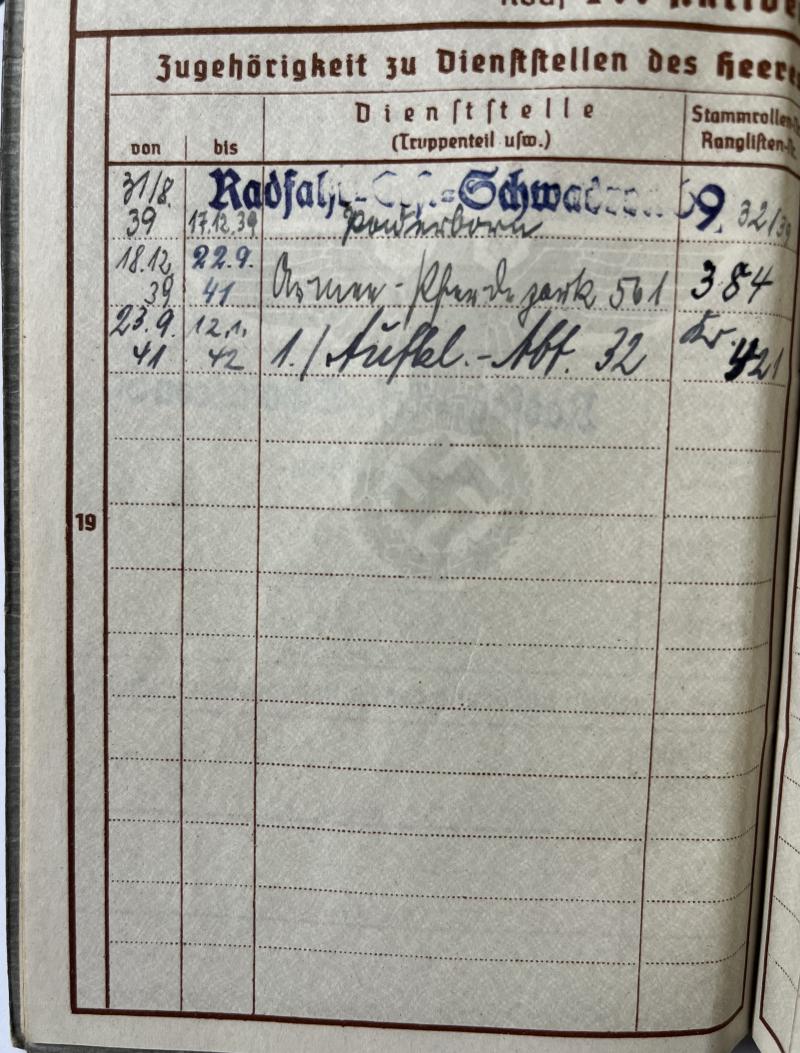 Zugehörigkeit zu Dienststellen des Heere
von
bis
Dienststelle
(Truppenteil usw.)
Stammrollen-
Ranglisten-
31/8. 39
17.12.39
Radfahr- -Schwadron 69.
Paderborn
32/39
18.12. 39
22.9. 41
Armee-Pferdepark 561
384
23.9. 41
12.1. 42
1./Aufkl.-Abt. 32
Kr. 421
19